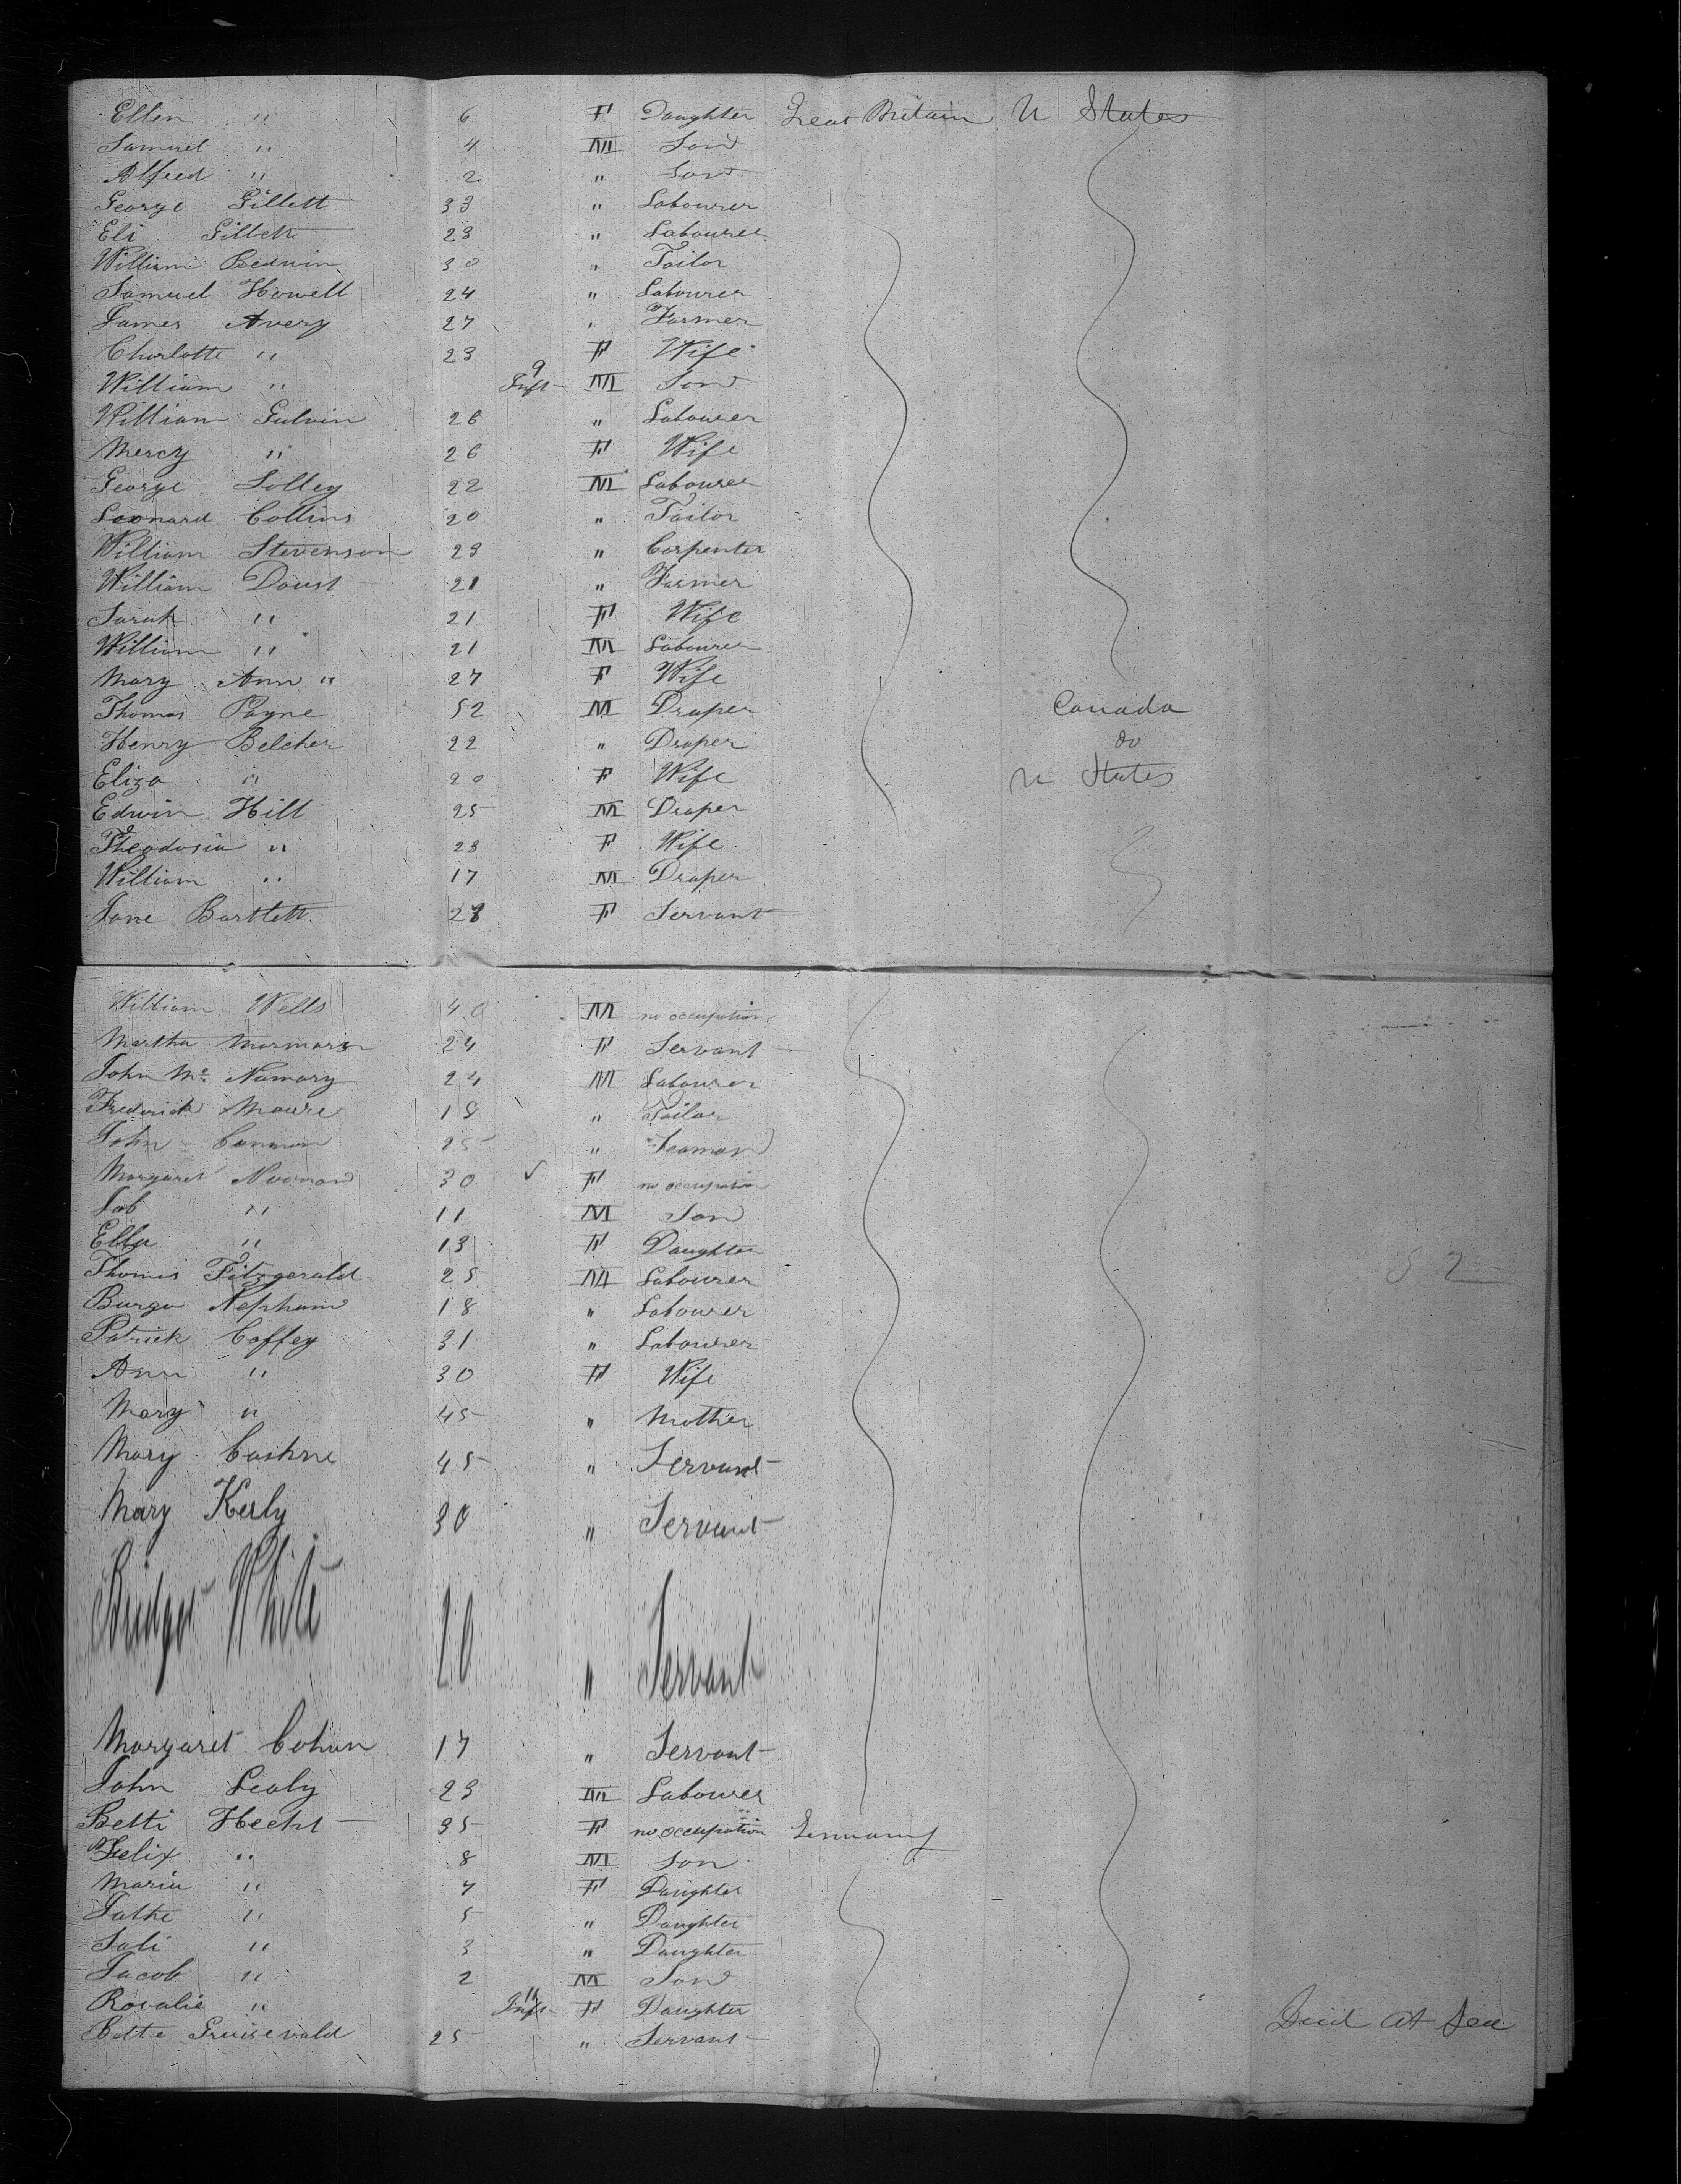 Ellen " 6 F Daughter Great Britain U States
Samuel " 4 M Son
Alfred " 2 " Son
George Gillett 33 " Labourer
Eli Gillett 23 " Labourer
William Bedwin 30 " Tailor
Samuel Howell 24 " Labourer
James Avery 27 " Farmer
Charlotte " 23 F Wife
William " Inft 9 M Son
William Galvin 26 " Labourer
Mercy " 26 F Wife
George Solley 22 M Labourer
Leonard Collins 20 " Tailor
William Stevenson 23 " Carpenter
William Doust 21 " Farmer
Sarah " 21 F Wife
William " 21 M Labourer
Mary Ann " 27 F Wife
Thomas Payne 52 M Draper Canada
Henry Belcher 22 " Draper do
Eliza " 20 F Wife U States
Edwin Hill 25 M Draper
Theodosia " 23 F Wife
William " 17 M Draper
Jane Bartlett 28 F Servant
William Wells 40 M no occupation
Martha 24 F Servant
John Mc Namary 24 M Labourer
Frederick Moore 18 " Tailor
John Cannon 25 " Seaman
Margaret Noonan 30 F no occupation
Job " 11 M Son
Ella " 13 F Daughter
Thomas Fitzgerald 25 M Labourer 52
18 " Labourer
Patrick Coffey 31 " Labourer
Ann " 30 F Wife
Mary " 45 " Mother
Mary 45 " Servant
Mary Kerly 30 " Servant
Bridget White 20 " Servant
Margaret Cohan 17 " Servant
John Lealy 23 M Labourer
Betti Hecht 35 F no occupation Germany
Felix " 8 M Son
Maria " 7 F Daughter
" 5 " Daughter
Sali " 3 " Daughter
Jacob " 2 M Son
Rosalie " Inft 11 F Daughter Died At Sea
25 " Servant